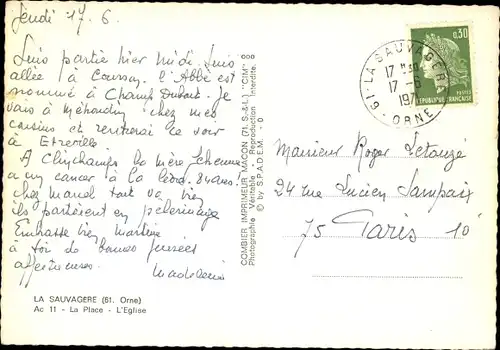 Jeudi 17.6.
Suis partie hier midi. Suis
allée à l'Abbé est
nommé à Champ Dubout. Je
vais à Méhoudin chez mes
cousins et rentrerai ce soir
à
A Clinchamps la mère
a un cancer à la 84 ans.
chez Marcel tout va bien
ils partiront en pèlerinage
Embrasse bien Martine
à toi de bonnes pensées
affectueuses.
Madeleine
LA SAUVAGERE (61. Orne)
Ac 11 - La Place - L'Eglise
COMBIER IMPRIMEUR MACON (71, S.-&-L.) "CIM"
Photographie Véritable - Reproduction Interdite
© by S.P.A.D.E.M.
61 LA SAUVAGERE
17 H
17 - 6
197
ORNE
0,30
POSTES
REPUBLIQUE FRANCAISE
Monsieur Roger Letouzé
24 rue Lucien Sampaix
75 Paris 10